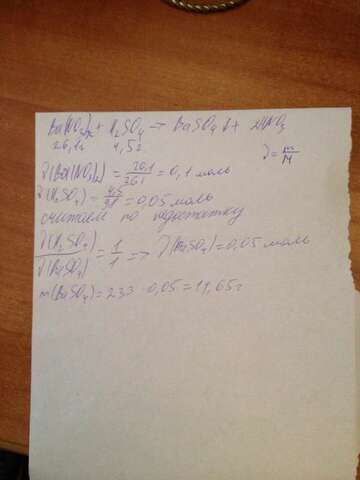 Ba(NO3)2 + H2SO4 → BaSO4↓ + 2HNO3
26,1г 4,5г
ν(Ba(NO3)2) = 26,1/261 = 0,1 моль ν = m/M
ν(H2SO4) = 4,5/98 = 0,05 моль
считаем по недостатку
ν(H2SO4)/ν(BaSO4) = 1/1 => ν(BaSO4) = 0,05 моль
m(BaSO4) = 233 · 0,05 = 11,65г